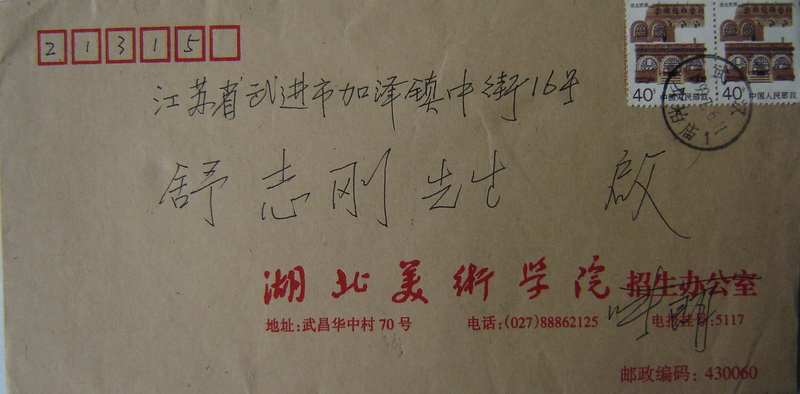 21315
江苏省武进市加泽镇中街16号
舒志刚先生 启
湖北美术学院 招生办公室
地址:武昌华中村70号 电话:(027)88862125 电报挂号:5117
邮政编码: 430060
40 中国人民邮政
40 中国人民邮政